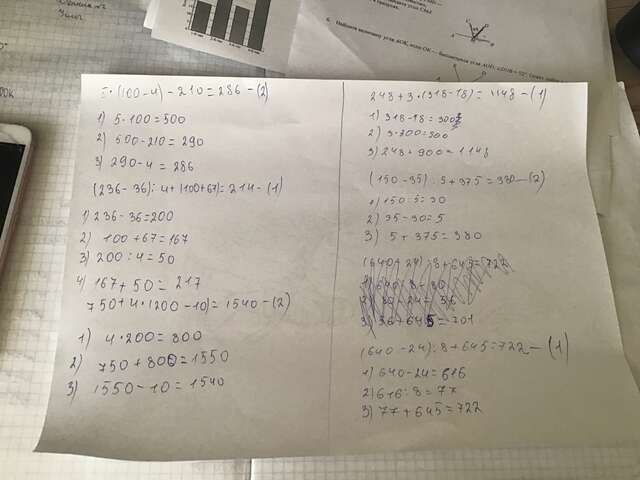 5·(100-4)-210=286-(2)
1) 5·100=500
2) 500-210=290
3) 290-4=286
(236-36):4+(100+67)=214-(1)
1) 236-36=200
2) 100+67=167
3) 200:4=50
4) 167+50=217
750+4·(200-10)=1540-(2)
1) 4·200=800
2) 750+800=1550
3) 1550-10=1540
248+3·(318-18)=1148-(1)
1) 318-18=300
2) 3·300=900
3) 248+900=1148
(150-35):5+375=380-(2)
1) 150:5=30
2) 35-30=5
3) 5+375=380
(640+24):8+645=722
3) 56+645=701
(640-24):8+645=722-(1)
1) 640-24=616
2) 616:8=77
3) 77+645=722